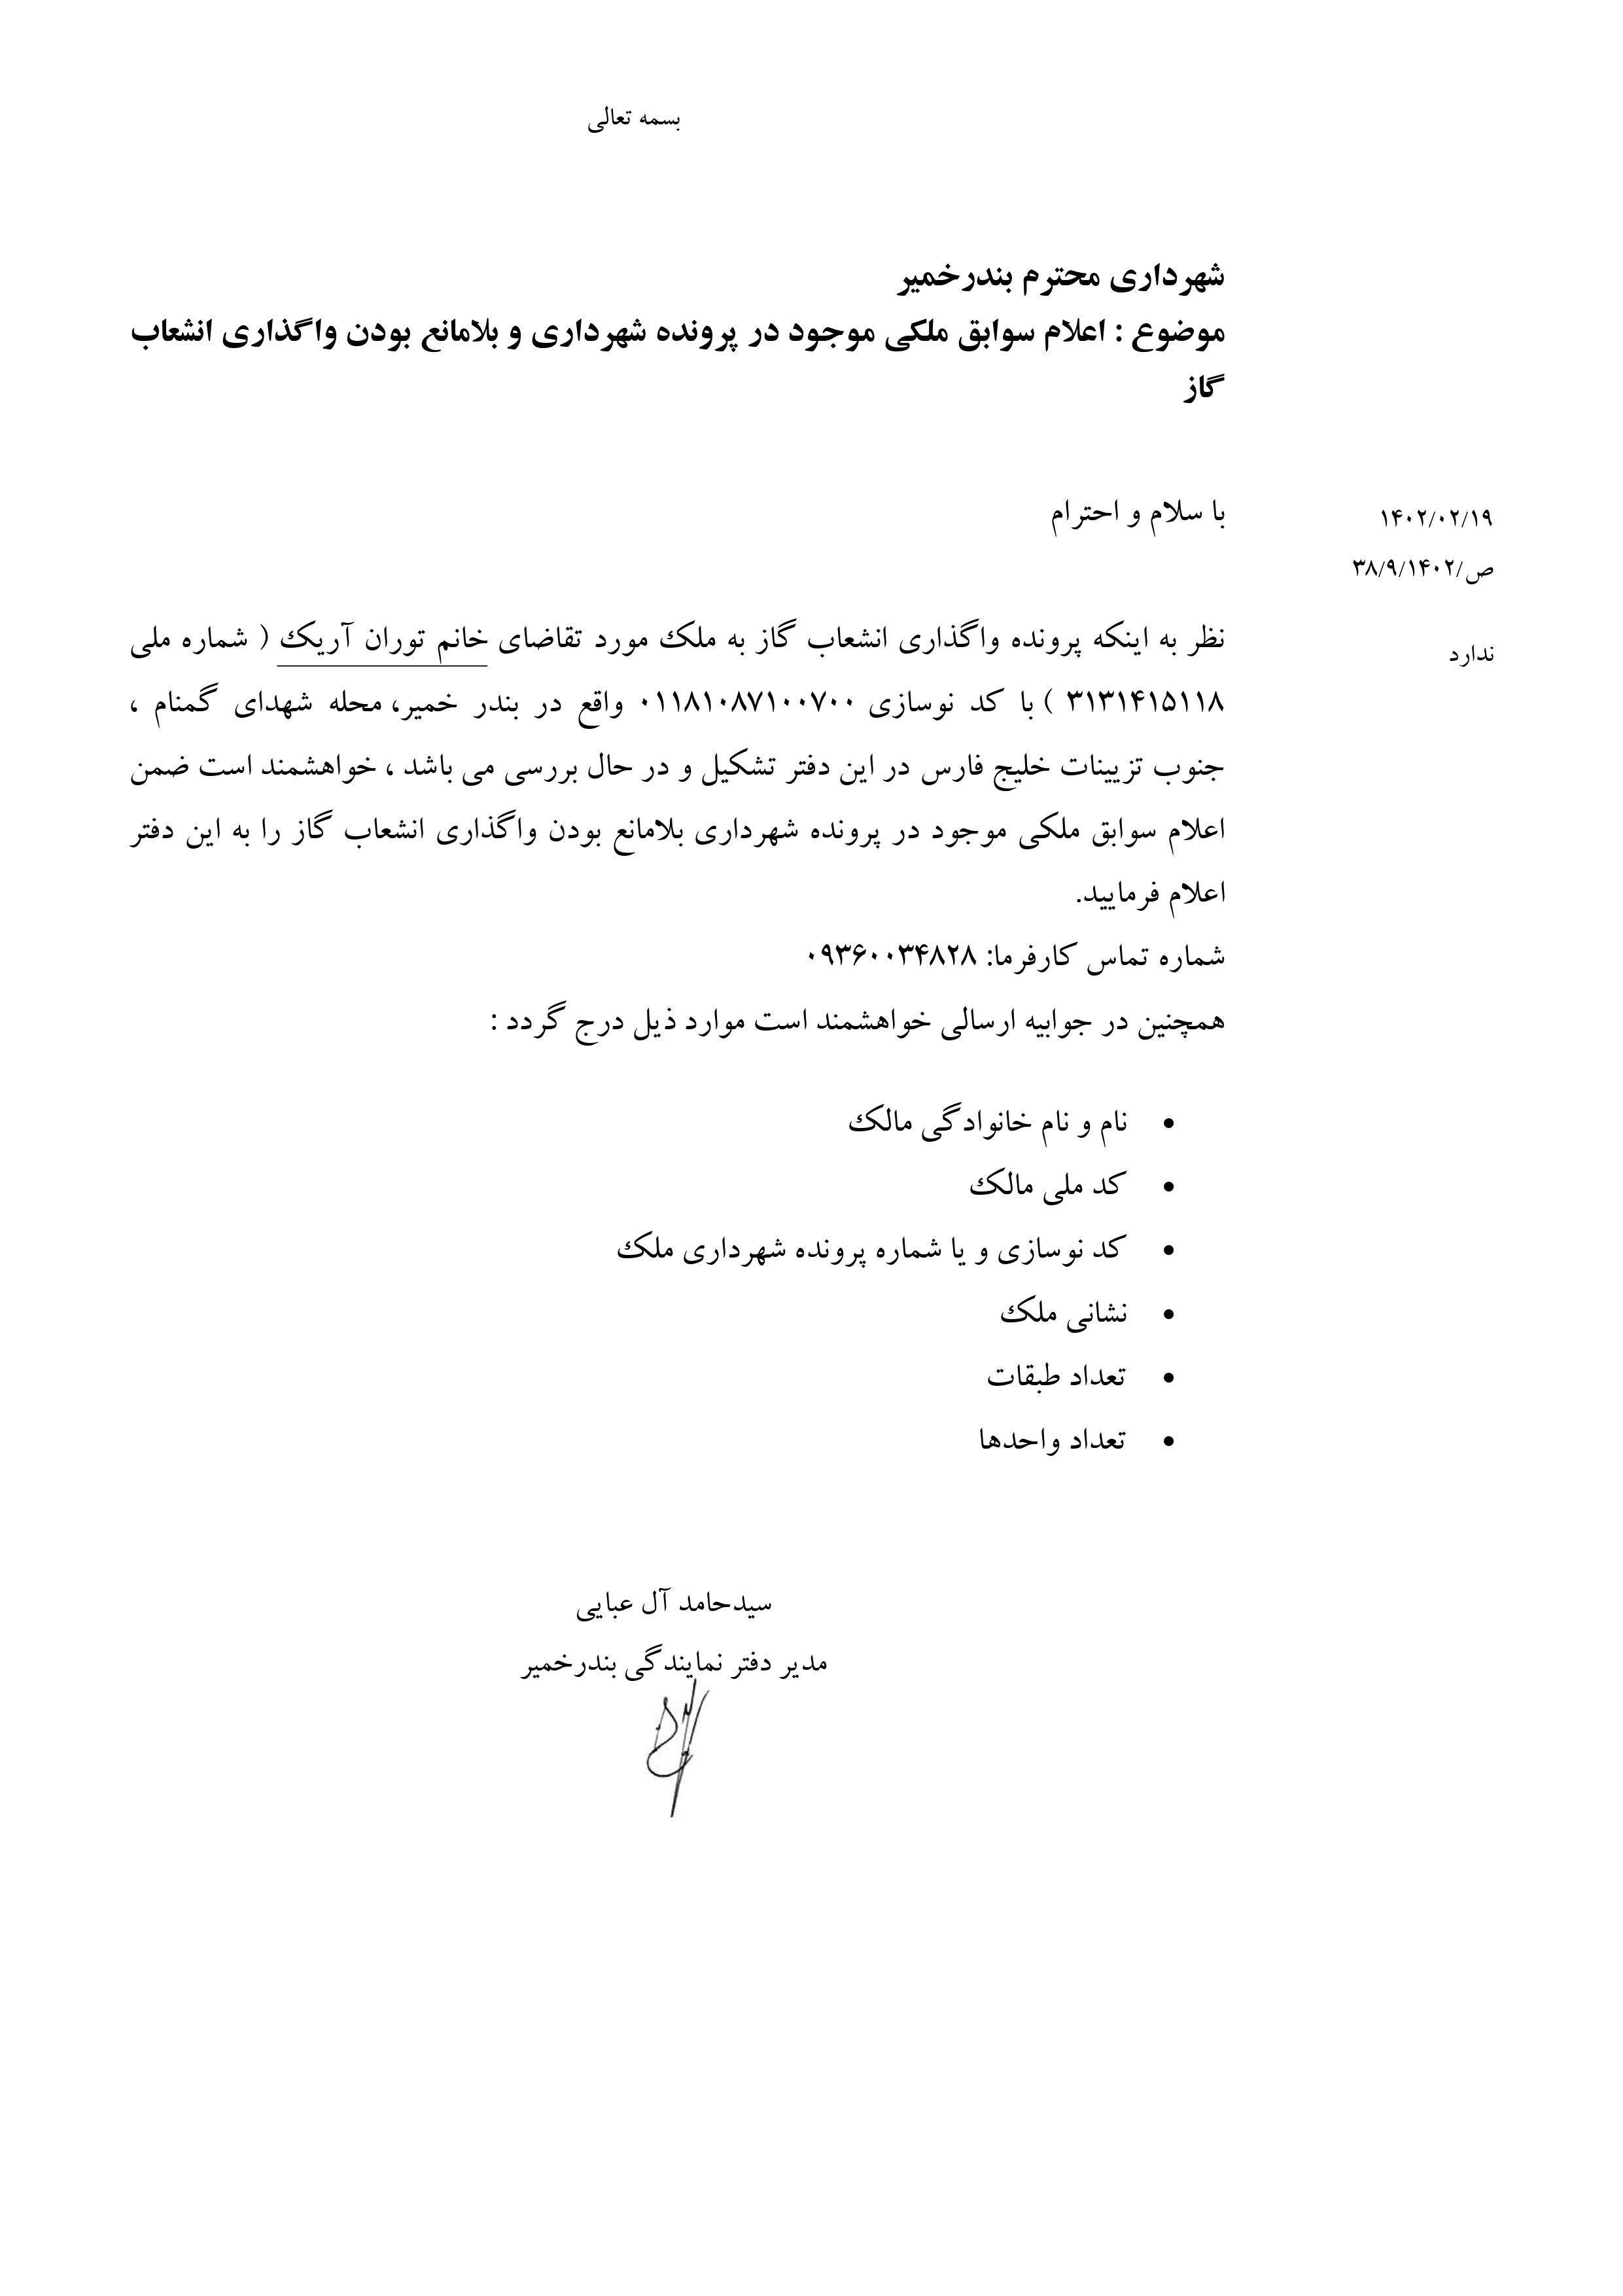 بسمه تعالی
شهرداری محترم بندرخمیر
موضوع : اعلام سوابق ملکی موجود در پرونده شهرداری و بلامانع بودن واگذاری انشعاب
گاز
۱۴۰۲/۰۲/۱۹
ص/۳۸/۹/۱۴۰۲
ندارد
با سلام و احترام
نظر به اینکه پرونده واگذاری انشعاب گاز به ملک مورد تقاضای خانم توران آریک ( شماره ملی
۳۱۳۱۴۱۵۱۱۸ ) با کد نوسازی ۰۱۱۸۱۰۸۷۱۰۰۷۰۰ واقع در بندر خمیر، محله شهدای گمنام ،
جنوب تزیینات خلیج فارس در این دفتر تشکیل و در حال بررسی می باشد ، خواهشمند است ضمن
اعلام سوابق ملکی موجود در پرونده شهرداری بلامانع بودن واگذاری انشعاب گاز را به این دفتر
اعلام فرمایید.
شماره تماس کارفرما: ۰۹۳۶۰۰۳۴۸۲۸
همچنین در جوابیه ارسالی خواهشمند است موارد ذیل درج گردد :
• نام و نام خانوادگی مالک
• کد ملی مالک
• کد نوسازی و یا شماره پرونده شهرداری ملک
• نشانی ملک
• تعداد طبقات
• تعداد واحدها
سیدحامد آل عبایی
مدیر دفتر نمایندگی بندرخمیر